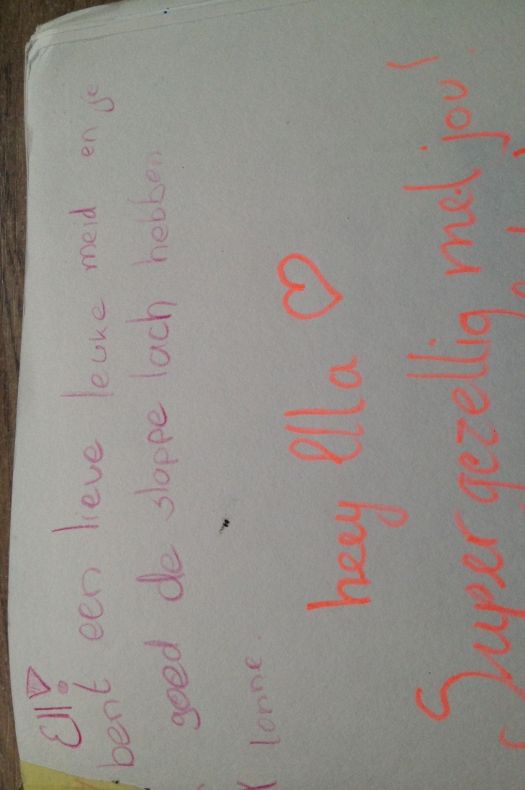 Elli ♡
bent een lieve leuke meid en je
goed de slappe lach hebben
x lonne.
heey Ella ♡
Super gezellig met jou!